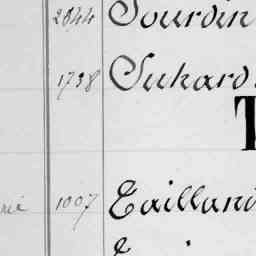 2844 Sourdin
1738 Suhard
T
1007 Tailland